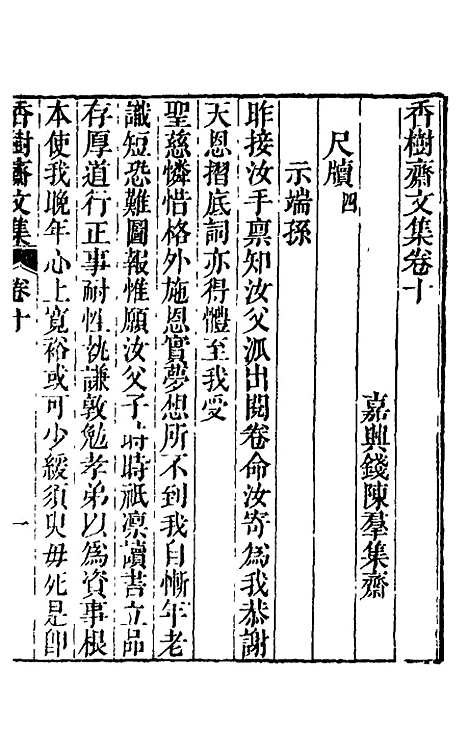 香樹齋文集卷十
嘉興錢陳羣集齋
尺牘四
示端孫
昨接汝手稟知汝父派出閱卷命汝寄為我恭謝
天恩摺底詞亦得體至我受
聖慈憐惜格外施恩實夢想所不到我自慚年老
識短恐難圖報惟願汝父子時時祗凜讀書立品
存厚道行正事耐性執謙敦勉孝弟以為資事根
本使我晚年心上寬裕或可少緩須臾毋死是卽
香樹齋文集 卷十 一